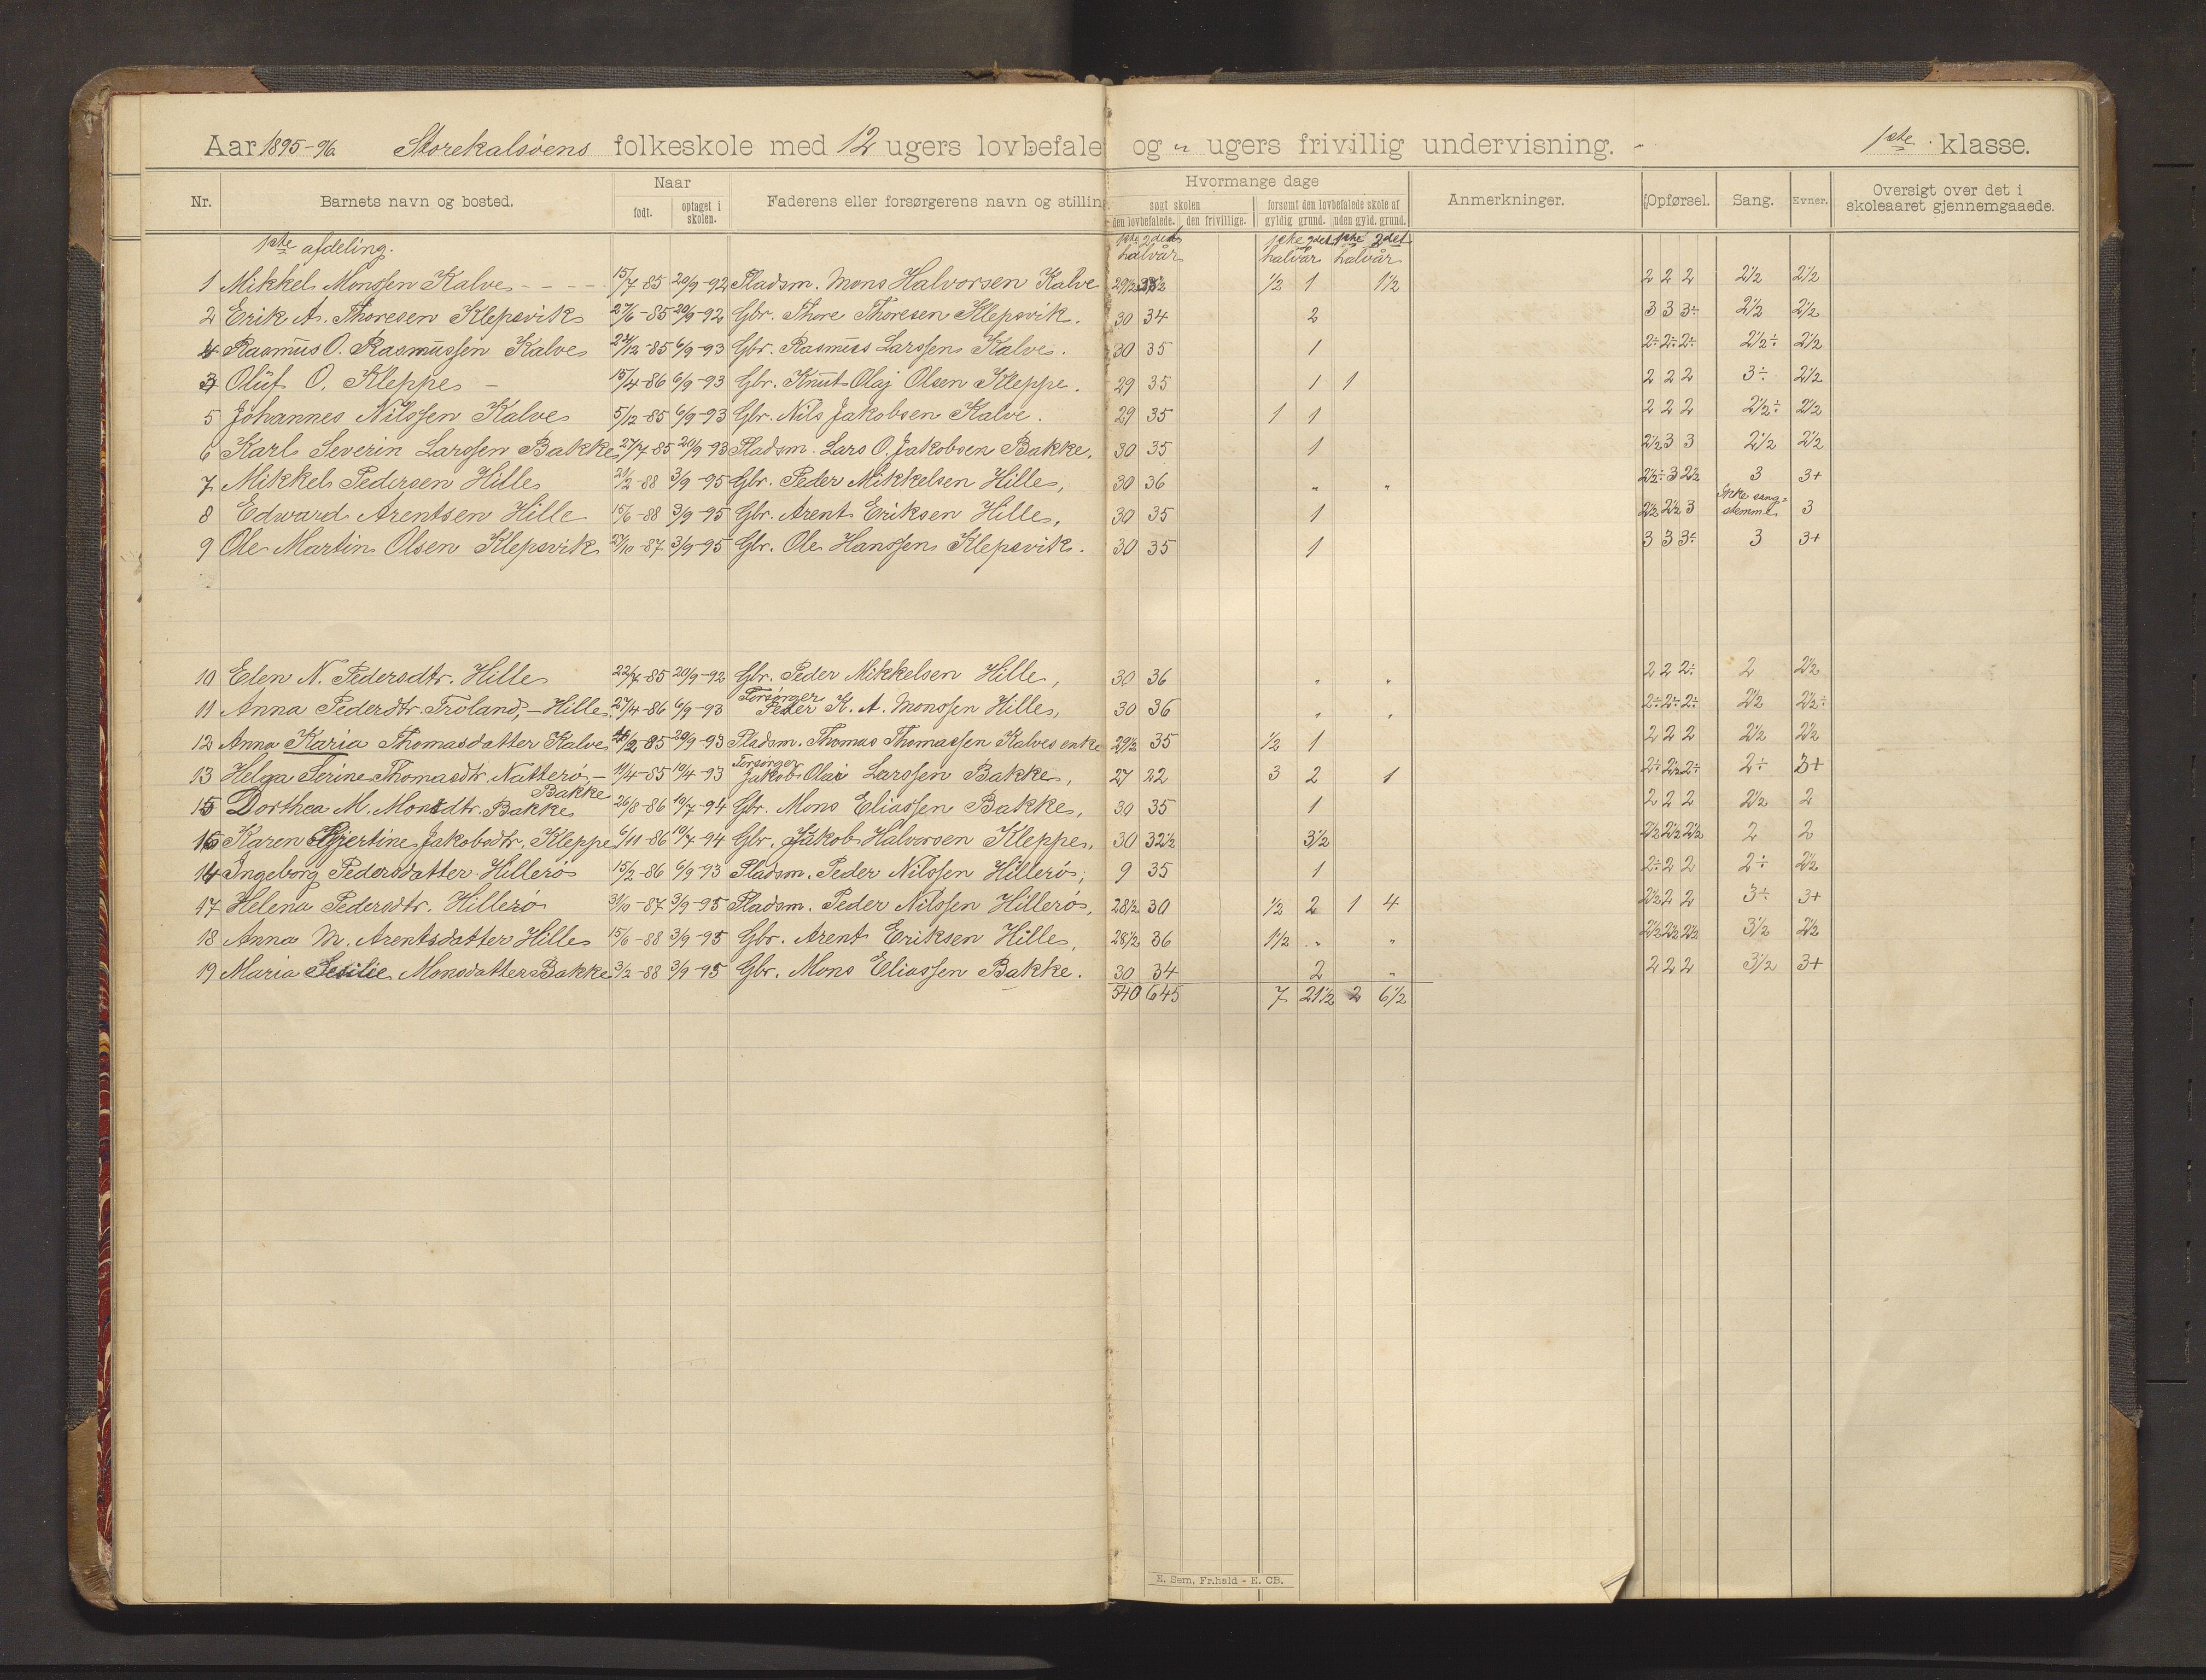 Aar 1895-96. Storekalsöens folkeskole med 12 ugers lovbefale og „ ugers frivillig undervisning. 1ste klasse.
Nr. Barnets navn og bosted. Naar født. optaget i skolen. Faderens eller forsørgerens navn og stilling Hvormange dage søgt skolen den lovbefalede. den frivillige. forsømt den lovbefalede skole af gyldig grund. uden gyld. grund. Anmerkninger. Opførsel. Sang. Evner. Oversigt over det i skoleaaret gjennemgaaede.
1ste afdeling. 1ste 2det halvår 1ste 2det halvår 1ste 2det halvår
1 Mikkel Monssen Kalve - - - - 15/7-85 20/9-92 Pladsm. Mons Halvorsen Kalve 29½ ½ 1 1½ 2 2 2 2½ 2½
2 Erik A. Thoresen Klepsvik 27/6-85 20/9-92 Gbr. Thore Thoresen Klepsvik. 30 34 2 3 3 3÷ 2½ 2½
4 Rasmus O. Rasmussen Kalve 22/12-85 6/9-93 Gbr. Rasmus Larssen Kalve. 30 35 1 2÷ 2÷ 2÷ 2½÷ 2½
3 Oluf O. Kleppe - 15/4-86 6/9-93 Gbr. Knut Olaj Olsen Kleppe. 29 35 1 1 2 2 2 3÷ 2½
5 Johannes Nilssen Kalve 5/12-85 6/9-93 Gbr. Nils Jakobsen Kalve. 29 35 1 1 2 2 2 2½÷ 2½
6 Karl Severin Larssen Bakke 27/7-85 20/9-93 Pladsm. Lars O. Jakobsen Bakke. 30 35 1 2½ 3 3 2½ 2½
7 Mikkel Pedersen Hille 21/2-88 3/9-95 Gbr. Peder Mikkelsen Hille, 30 36 „ „ 2½÷ 3 2½ 3 3+
8 Edward Arentsen Hille 15/6-88 3/9-95 Gbr. Arent Eriksen Hille, 30 35 1 2½ 2½ 3 Ikke sang=stemme 3
9 Ole Martin Olsen Klepsvik 27/10-87 3/9-95 Gbr. Ole Hanssen Klepsvik. 30 35 1 3 3 3÷ 3 3+
10 Elen N. Pedersdtr. Hille 22/7-85 20/9-92 Gbr. Peder Mikkelsen Hille, 30 36 „ „ 2 2 2÷ 2 2½
11 Anna Pederdtr. Troland, - Hille. 27/4-86 6/9-93 Forsørger Peder K. A. Monssen Hille, 30 36 „ „ 2÷ 2÷ 2÷ 2½ 2½÷
12 Anna Karia Thomasdatter Kalve /2-85 20/9-93 Pladsm. Thomas Thomassen Kalves enke 29½ 35 ½ 1 2 2 2 2½ 2½
13 Helga Serine Thomasdtr. Natterö, - Bakke 11/4-85 10/4-93 Forsørger Jakob Olai Larssen Bakke, 27 22 3 2 1 2÷ 2½ 2÷ 2÷ 3+
15 Dorthea M. Monsdtr. Bakke 26/8-86 10/7-94 Gbr. Mons Eliassen Bakke, 30 35 1 2 2 2 2½ 2
16 Karen Gjertine Jakobsdtr. Kleppe 6/11-86 10/7-94 Gbr. Jakob Halvorsen Kleppe, 30 32½ 3½ 2½ 2½ 2½ 2 2
14 Ingeborg Pedersdatter Hillerö 15/2-86 6/9-93 Pladsm. Peder Nilssen Hillerö, 9 35 1 2÷ 2 2 2÷ 2½
17 Helena Pedersdtr. Hillerö 31/10-87 3/9-95 Pladsm. Peder Nilssen Hillerö, 28½ 30 ½ 2 1 4 2½ 2 2 3÷ 3+
18 Anna M. Arentsdatter Hille 15/6-88 3/9-95 Gbr. Arent Eriksen Hille, 28½ 36 1½ „ „ 2½ 2½ 2½ 3½ 2½
19 Maria Sesilie Monsdatter Bakke 3/2-88 3/9-95 Gbr. Mons Eliassen Bakke. 30 34 2 „ 2 2 2 3½ 3+
540 645 7 21½ 2 6½
E. Sem, Fr.hald - E. CB.